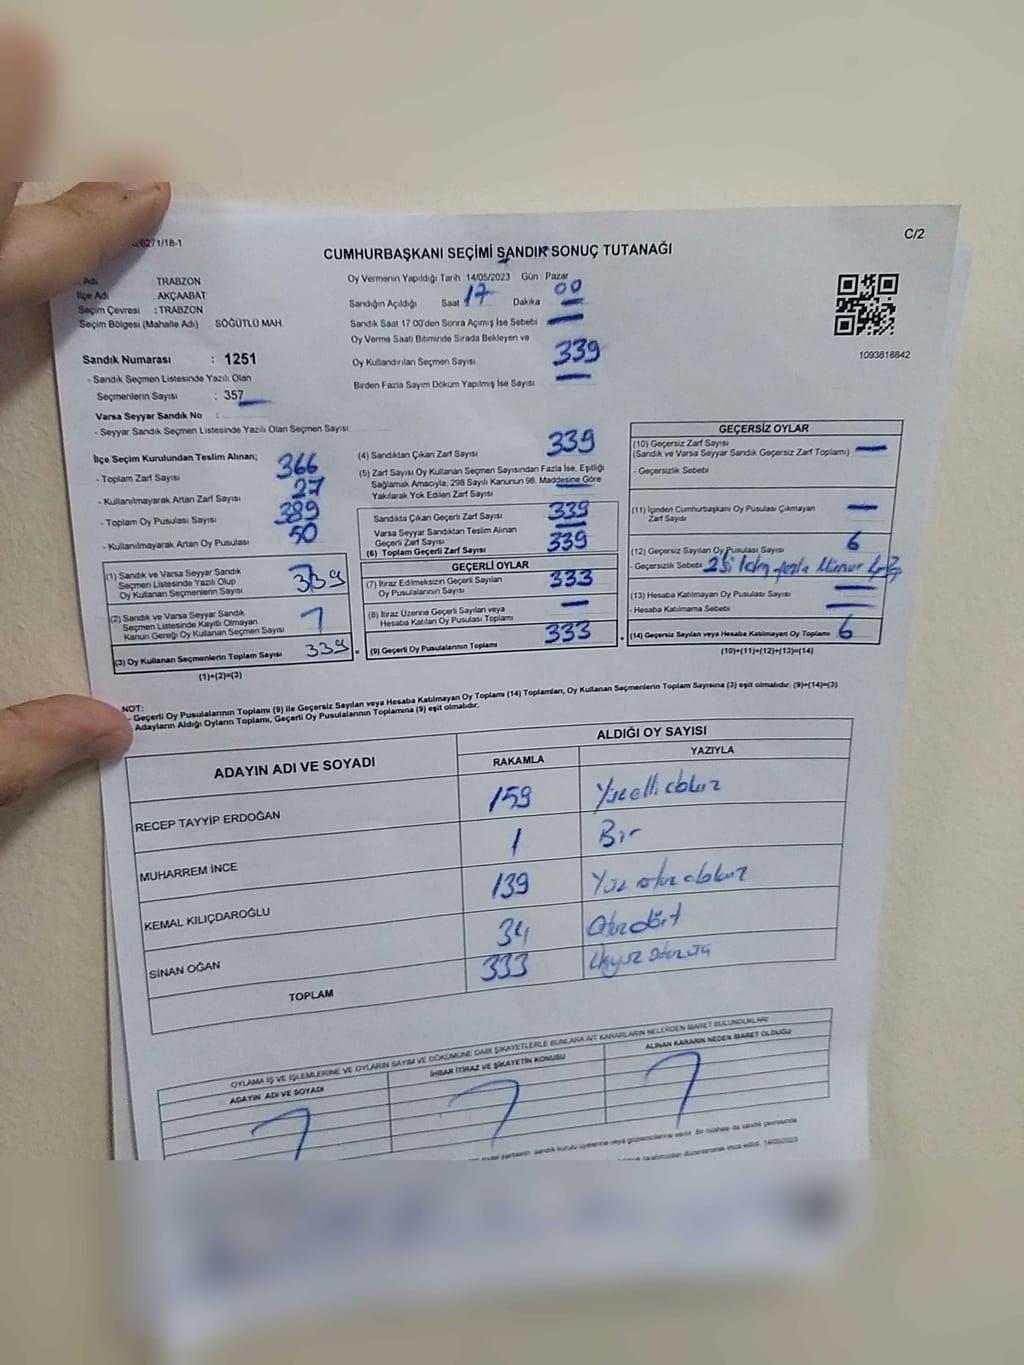 6271/18-1
C/2
CUMHURBAŞKANI SEÇİMİ SANDIK SONUÇ TUTANAĞI
Adı TRABZON
İlçe Adı : AKÇAABAT
Seçim Çevresi : TRABZON
Seçim Bölgesi (Mahalle Adı) SÖĞÜTLÜ MAH.
Sandık Numarası : 1251
- Sandık Seçmen Listesinde Yazılı Olan
Seçmenlerin Sayısı : 357
Varsa Seyyar Sandık No :
- Seyyar Sandık Seçmen Listesinde Yazılı Olan Seçmen Sayısı
Oy Vermenin Yapıldığı Tarih 14/05/2023 Gün Pazar
Sandığın Açıldığı Saat 17 Dakika 00
Sandık Saat 17 00'den Sonra Açımış İse Sebebi
Oy Verme Saati Bitiminde Sırada Bekleyen ve
Oy Kullandırılan Seçmen Sayısı 339
Birden Fazla Sayım Döküm Yapılmış İse Sayısı
1093818842
İlçe Seçim Kurulundan Teslim Alınan;
- Toplam Zarf Sayısı 366
- Kullanılmayarak Artan Zarf Sayısı 27
- Toplam Oy Pusulası Sayısı 389
- Kullanılmayarak Artan Oy Pusulası 50
(1) Sandık ve Varsa Seyyar Sandık
Seçmen Listesinde Yazılı Olup
Oy Kullanan Seçmenlerin Sayısı 339
(2) Sandık ve Varsa Seyyar Sandık
Seçmen Listesinde Kayıtlı Olmayan
Kanun Gereği Oy Kullanan Seçmen Sayısı
(3) Oy Kullanan Seçmenlerin Toplam Sayısı 339
(1)+(2)=(3)
(4) Sandıktan Çıkan Zarf Sayısı 339
(5) Zarf Sayısı Oy Kullanan Seçmen Sayısından Fazla İse, Eşitliği
Sağlamak Amacıyla, 298 Sayılı Kanunun 98. Maddesine Göre
Yakılarak Yok Edilen Zarf Sayısı
Sandıkta Çıkan Geçerli Zarf Sayısı 339
Varsa Seyyar Sandıktan Teslim Alınan
Geçerli Zarf Sayısı
(6) Toplam Geçerli Zarf Sayısı 339
GEÇERLİ OYLAR
(7) İtiraz Edilmeksizin Geçerli Sayılan
Oy Pusulalarının Sayısı 333
(8) İtiraz Üzerine Geçerli Sayılan veya
Hesaba Katılan Oy Pusulası Toplamı
(9) Geçerli Oy Pusulalarının Toplamı 333
GEÇERSİZ OYLAR
(10) Geçersiz Zarf Sayısı
(Sandık ve Varsa Seyyar Sandık Geçersiz Zarf Toplamı)
- Geçersizlik Sebebi
(11) İçinden Cumhurbaşkanı Oy Pusulası Çıkmayan
Zarf Sayısı
(12) Geçersiz Sayılan Oy Pusulası Sayısı 6
- Geçersizlik Sebebi
(13) Hesaba Katılmayan Oy Pusulası Sayısı
- Hesaba Katılmama Sebebi
(14) Geçersiz Sayılan veya Hesaba Katılmayan Oy Toplamı 6
(10)+(11)+(12)+(13)=(14)
NOT:
- Geçerli Oy Pusulalarının Toplamı (9) ile Geçersiz Sayılan veya Hesaba Katılmayan Oy Toplamı (14) Toplamları, Oy Kullanan Seçmenlerin Toplam Sayısına (3) eşit olmalıdır. (9)+(14)=(3)
Adayların Aldığı Oyların Toplamı, Geçerli Oy Pusulalarının Toplamına (9) eşit olmalıdır.
ADAYIN ADI VE SOYADI ALDIĞI OY SAYISI
RAKAMLA YAZIYLA
RECEP TAYYİP ERDOĞAN 159 Yüzellidokuz
MUHARREM İNCE 1 Bir
KEMAL KILIÇDAROĞLU 139 Yüz otuz dokuz
SİNAN OĞAN 34 Otuzdört
TOPLAM 333 Üçyüz otuzüç
OYLAMA İŞ VE İŞLEMLERİNE VE OYLARIN SAYIM VE DÖKÜMÜNE DAİR ŞİKAYETLERLE BUNLARA AİT KARARLARIN NELERDEN İBARET BULUNDUKLARI
ADAYIN ADI VE SOYADI İHBAR İTİRAZ VE ŞİKAYETİN KONUSU ALINAN KARARIN NEDEN İBARET OLDUĞU